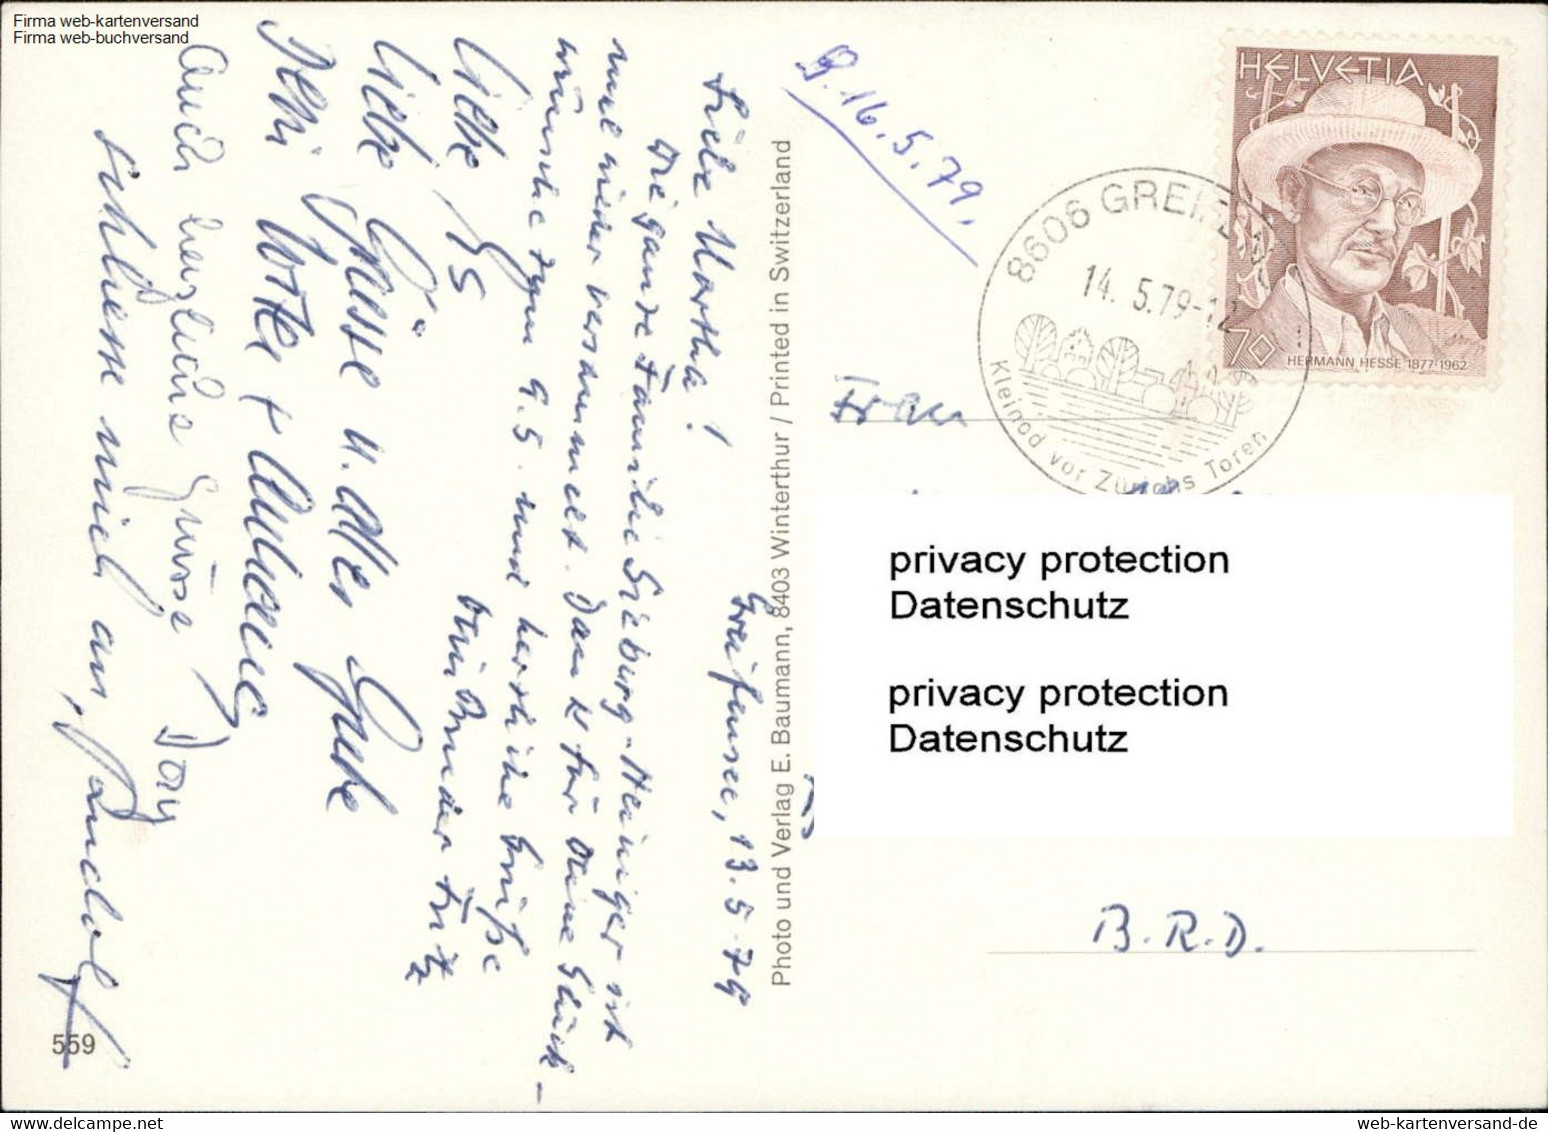 Firma web-kartenversand
Firma web-buchversand
Greifensee, 13.5.79
Liebe Martha!
Die ganze Familie Sieburg-Heiniger ist
mal wieder versammelt. Dank für Deine Glück-
wünsche zum 9.5. und herzliche Grüße
Dein Bruder Fritz
Liebe
Liebe Grüsse u. Alles Gute
auch herzliche Grüsse
schliesse mich an,
559
Photo und Verlag E. Baumann, 8403 Winterthur / Printed in Switzerland
B. 16.5.79.
8606 GREIFENSEE
14. 5.79-12
Kleinod vor Zürichs Toren
HELVETIA
70
HERMANN HESSE 1877-1962
Frau
privacy protection
Datenschutz
privacy protection
Datenschutz
B.R.D.
www.delcampe.net
web-kartenversand-de